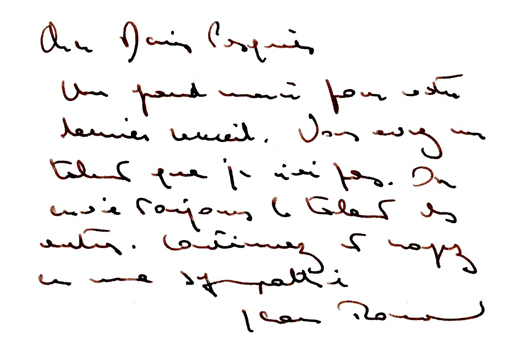 Cher Denis Pesquiès
Un grand merci pour votre
dernier recueil. Vous avez un
talent que je n'ai pas. On
envie toujours le talent des
autres. Continuez et croyez
en ma sympathie
Jean